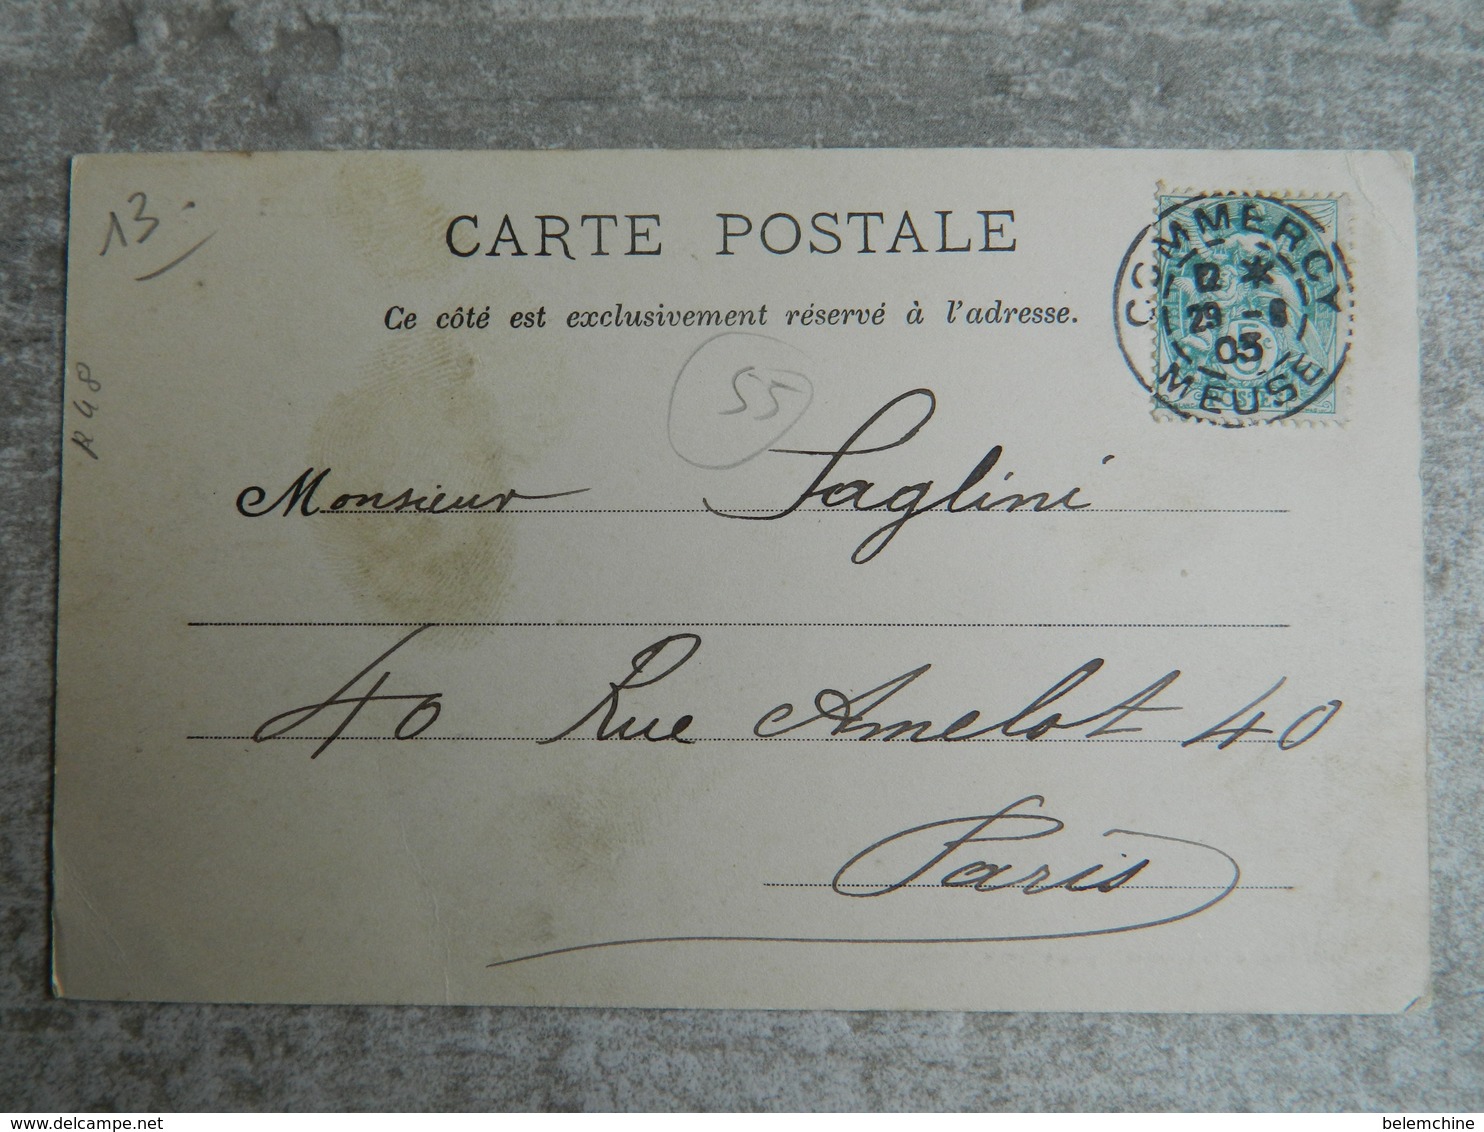 13.
CARTE POSTALE
Ce côté est exclusivement réservé à l'adresse.
COMMERCY
29 -8
03
MEUSE
5c
POSTE
55
Monsieur Saglini
40 Rue Amelot 40
Paris
delcampe.net
belemchine